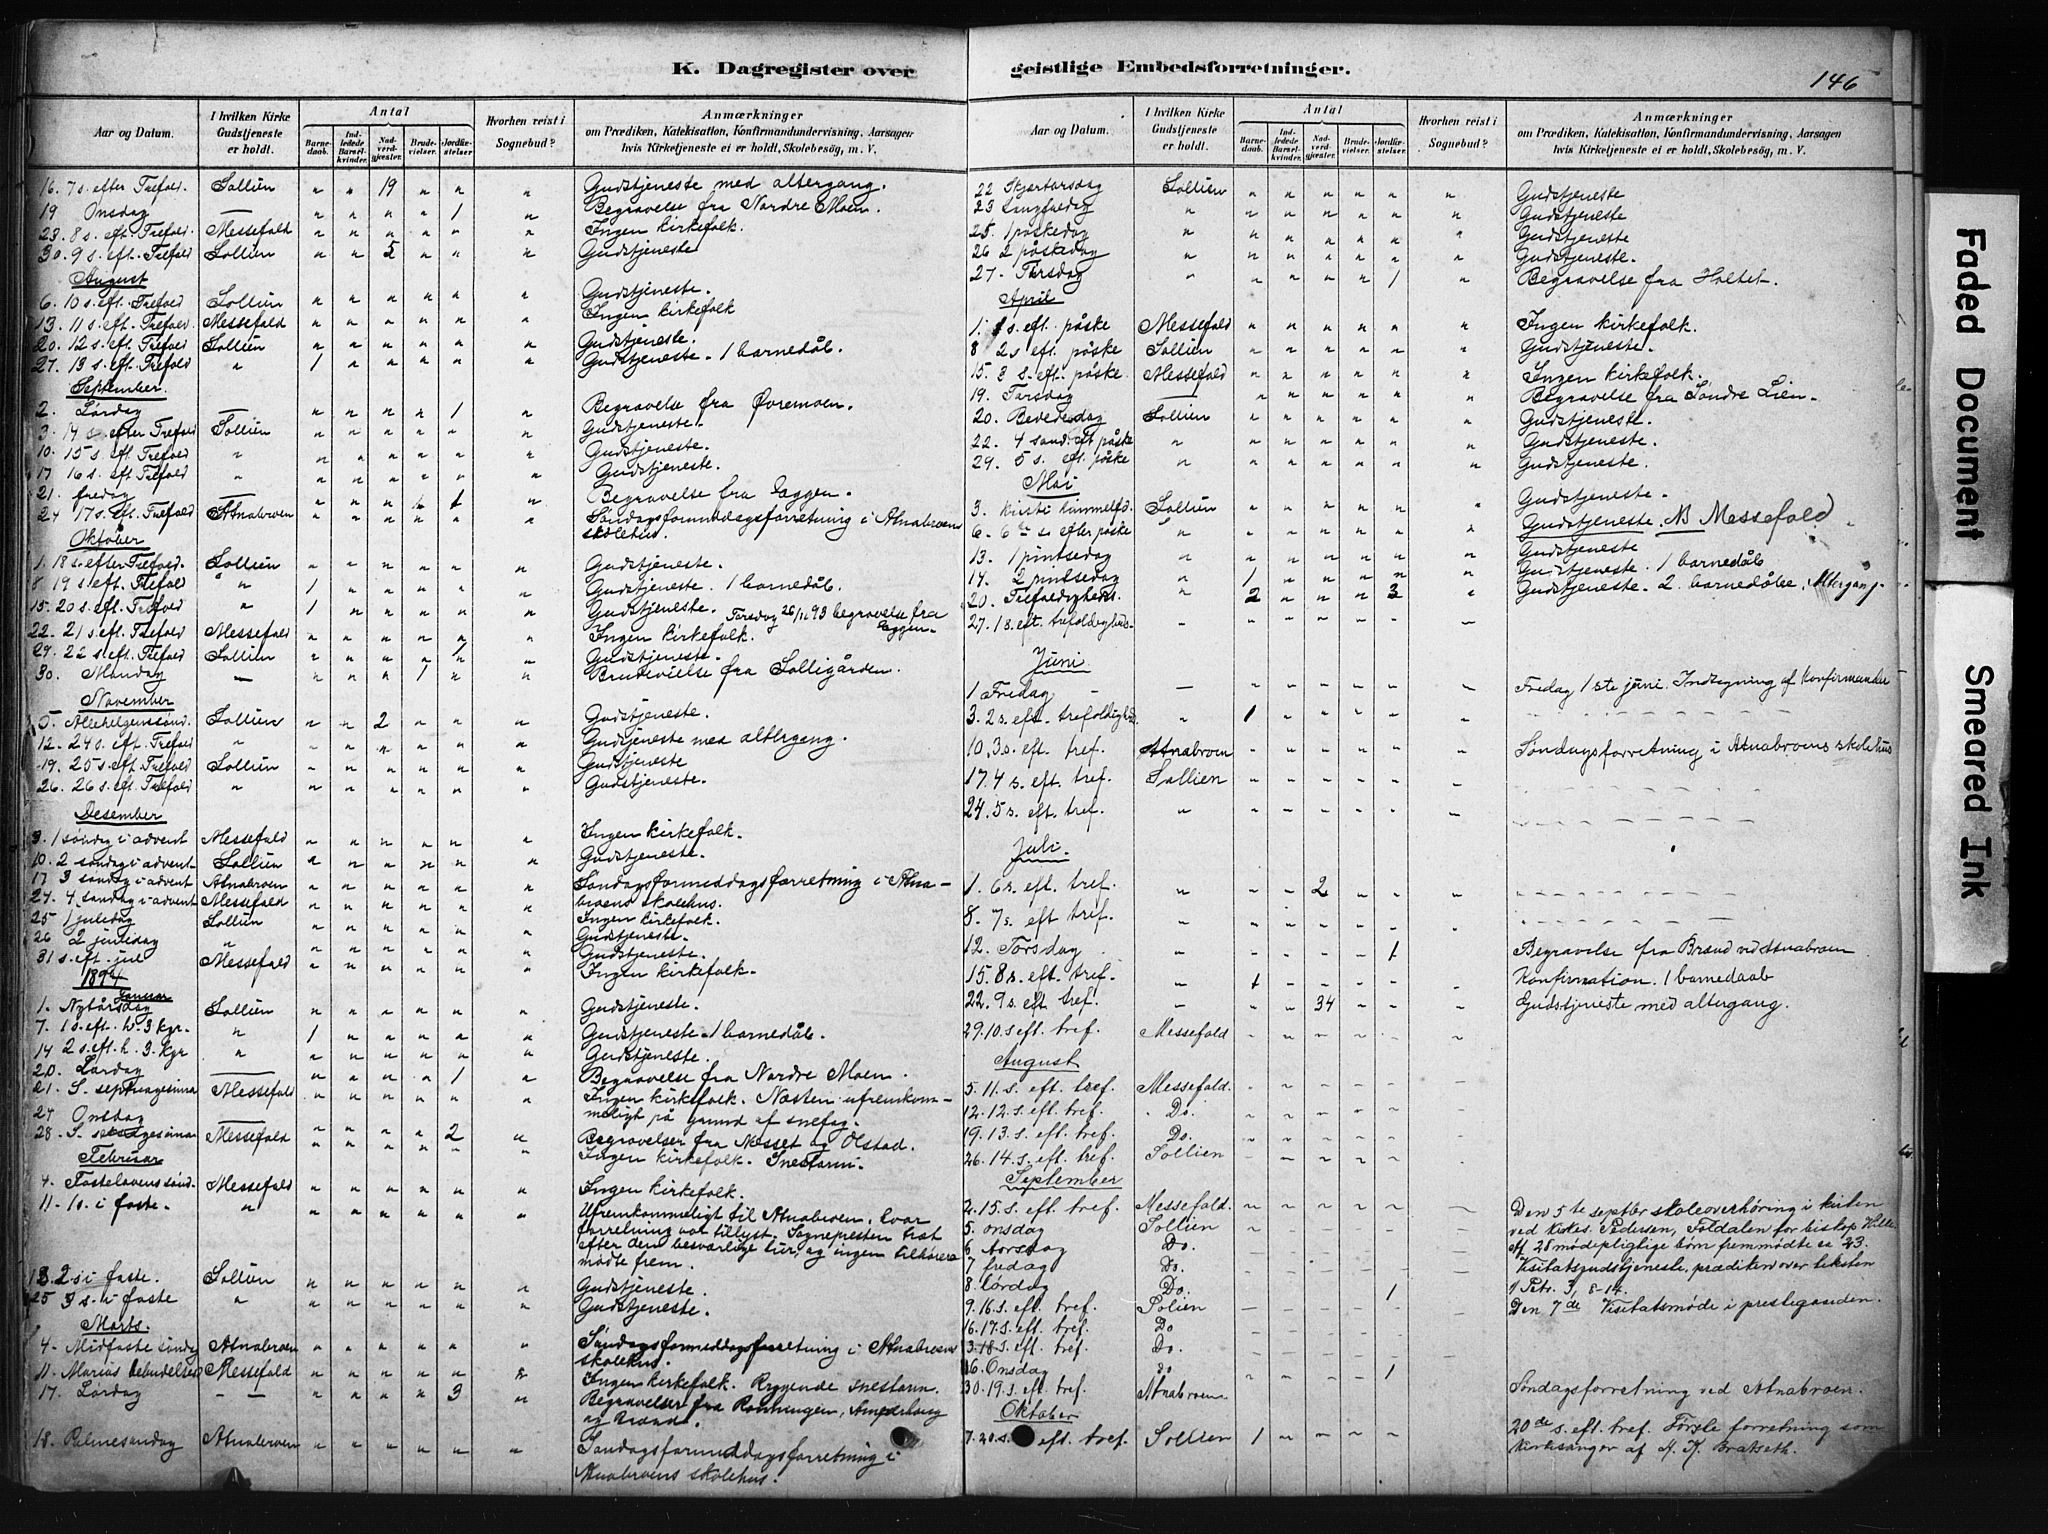 K. Dagregister over geistlige Embedsforretninger.
146
Aar og Datum. I hvilken Kirke Gudstjeneste er holdt. Antal Barnedaab. Indledede Barselkvinder. Nadverdgjester. Brudevielser. Jordfæstelser Hvorhen reist i Sognebud? Anmærkninger om Prædiken, Katekisation, Konfirmandundervisning, Aarsagen hvis Kirketjeneste ei er holdt, Skolebesøg, m. V.
16. 7 s. efter Trefold. Sollien " " 19 " " " Gudstjeneste med altergang.
19 Onsdag — " " " " 1 " Begravelse fra Nordre Moen.
23. 8 s. eft. Trefold. Messefald " " " " " " Ingen kirkefolk.
30. 9 s. eft. Trefold Sollien " " 5 " " " Gudstjeneste
August
6. 10 s. eft. Trefold Sollien " " " " " " Gudstjeneste.
13. 11 s. eft. Trefold. Messefald " " " " " " Ingen kirkefolk
20. 12 s. eft. Trefold Sollien " " " " " " Gudstjeneste.
27. 13 s. eft. Trefold " 1 " " " " Gudstjeneste. 1 barnedåb.
September
2. Lørdag — " " " " 1 " Begravelse fra Øvremoen.
3. 14 s. efter Trefold Sollien " " " " " " Gudstjeneste.
10. 15 s. eft. Trefold " " " " " " " Gudstjeneste.
17 16 s. eft. Trefold " " " " " " " Gudstjeneste.
21. fredag — " " " " 1 " Begravelse fra Uggen.
24 17 s. eft. Trefold Atnabroen " " " " " " Søndagsformiddagsforretning i Atnabroens
skolehus.
Oktober
1. 18 s. efter Trefold. Sollien " " " " " " Gudstjeneste.
8. 19 s. eft. Trefold " 1 " " " " " Gudstjeneste. 1 barnedåb.
15. 20 s. eft. Trefold " 1 " " " " " Gudstjeneste. Torsdag 26/10 93 begravelse fra
Uggen.
22. 21 s. eft. Trefold Messefald " " " " " " Ingen kirkefolk.
29. 22 s. eft. Trefold Sollien " " " " 1 " Gudstjeneste.
30. Mandag — " " " 1 " " Brudevielse fra Solligården.
November
5. Allehelgenssønd. Sollien " " 2 " " " Gudstjeneste.
12. 24 s. eft. Trefold " " " " " " " Gudstjeneste med altergang.
19. 25 s. eft. Trefold Sollien " " " " " " Gudstjeneste
26. 26 s. eft. Trefold " " " " " " " Gudstjeneste.
Desember
3. 1 søndag i advent Messefald " " " " " " Ingen kirkefolk.
10. 2 søndag i advent Sollien " " " " " " Gudstjeneste.
17 3 søndag i advent Atnabroen " " " " " " Søndagsformiddagsforretning i Atna-
24. 4 søndag i advent Messefald " " " " " " broens skolehus. Ingen kirkefolk.
25 1 juledag Sollien " " " " " " Gudstjeneste.
26 2 juledag " " " " " " " Gudstjeneste.
31 s. eft. jul Messefald " " " " " " Ingen kirkefolk.
1894
Januar
1. Nytårsdag Sollien " " " " " " Gudstjeneste.
7. 1 s. eft. h. 3 kgr. " 1 " " " " " Gudstjeneste. 1 barnedåb.
14 2 s. eft. h. 3. kgr " " " " " " " Gudstjeneste.
20. Lørdag — " " " " 1 " Begravelse fra Nordre Moen.
21. S. septuagesima Messefald " " " " " " Ingen kirkefolk. Næsten ufremkom-
meligt på grund af snefog.
24 Onsdag — " " " " 2 " Begravelser fra Messet og Olstad.
28. S. seksagesima Messefald " " " " " " Ingen kirkefolk. Snestorm.
Februar
4. Fastelavenssønd. Messefald " " " " " " Ingen kirkefolk.
11. 1 s. i faste. " " " " " " " Ufremkommeligt til Atnabroen, hvor
forretning var tillyst. Sognepresten træt
efter den besværlige tur, og ingen tilhørere
mødte frem.
18 2 s. i faste. Sollien " " " " " " Gudstjeneste.
25 3 s. i faste " " " " " " " Gudstjeneste.
Marts.
4. Midfaste søndag Atnabroen " " " " " " Søndagsformiddagsforretning i Atnabroens
skolehus.
11. Mariæ bebudelses Messefald " " " " " " Ingen kirkefolk. Rygende snestorm.
17. Lørdag — " " " " 3 " Begravelser fra Rønningen,
og Brænd.
18. Palmesøndag Atnabroen " " " " " " Søndagsformiddagsforretning i
Atnabroens skolehus.
Aar og Datum. I hvilken Kirke Gudstjeneste er holdt. Antal Barnedaab. Indledede Barselkvinder. Nadverdgjester. Brudevielser. Jordfæstelser. Hvorhen reist i Sognebud? Anmærkninger om Prædiken, Katekisation, Konfirmandundervisning, Aarsagen hvis Kirketjeneste ei er holdt, Skolebesøg, m. V.
22 Skjærtorsdag Sollien " " " " " " Gudstjeneste
23 Langfredag " " " " " " " Gudstjeneste
25. 1 påskedag " " " " " " " Gudstjeneste
26 2 påskedag " " " " " " " Gudstjeneste.
27. Tirsdag " " " " " 1 " Begravelse fra Holtet.
April
1. 1 s. eft. påske Messefald " " " " " " Ingen kirkefolk.
8 2 s. eft. påske Sollien " " " " " " Gudstjeneste.
15. 3 s. eft. påske. Messefald " " " " " " Ingen kirkefolk.
19. Torsdag — " " " " " " Begravelse fra Søndre Lien.
20. Bededag Sollien " " " " " " Gudstjeneste.
22. 4 sønd. eft påske " " " " " " " Gudstjeneste.
29. 5 s. eft. påske " " " " " " " Gudstjeneste.
Mai
3. Kristi himmelfd. Sollien " " " " " " Gudstjeneste.
6. 6te s. efter påske " " " " " " " Gudstjeneste. NB Messefald
13. 1 pintsedag " " " " " " " Gudstjeneste
14. 2 pintsedag " 1 " " " " " Gudstjeneste. 1 barnedåb
20. Trefoldigheds. " 2 " " " 3 " Gudstjeneste. 2 barnedåbe, Altergang.
27. 1 s. eft. trefoldigheds.
Juni
1 Fredag — Fredag 1ste juni. Indtegning af Konfirmander
3. 2 s. eft. trefoldighed. " 1
10. 3 s. eft. tref. Atnabroen Søndagsforretning i Atnabroens skolehus
17. 4 s. eft. tref. Sollien
24. 5 s. eft. tref. "
Juli.
1. 6 s. eft. tref. " 2
8. 7 s. eft tref. "
12. Torsdag " 1 Begravelse fra Brænd ved Atnabroen
15. 8 s. eft tref. " 1 Konfirmation. 1 barnedaab
22. 9 s. eft tref. " 34 Gudstjeneste med altergang.
29. 10. s. eft. tref. Messefald
August
5. 11. s. eft. tref. Messefald.
12. 12. s. eft. tref. Do.
19. 13. s. eft. tref. Do.
26. 14. s. eft. tref. Sollien
September
2. 15. s. eft. tref. Messefald. Den 5te septbr skoleoverhøring i kirken
5. onsdag Sollien ved Kirkes. Pedersen, Foldalen for biskop Hille.
6 torsdag Do. Af 28 mødepligtige børn fremmødte ca 23.
7 fredag Do. Visitatsgudstjeneste, prædiken over teksten
8. lørdag Do. 1 1 Petr. 3, 8-14.
9. 16. s. eft. tref. Solien Den 7de Visitatsmøde i prestegaarden.
16. 17. s. eft tref. Do
23. 18 s. eft. tref. Do.
26. Onsdag Do 1
30. 19. s. eft. tref. Atnabroen Søndagsforretning ved Atnabroen.
Oktober
7. 20. s. eft. tref. Sollien 1 20de s. eft. tref. Første forretning som
kirkesanger af A. K. Bratseth.
Faded Document
Smeared Ink